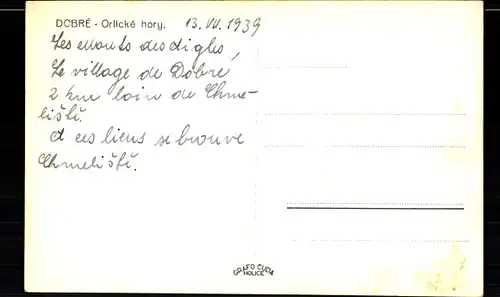 DOBRÉ - Orlické hory. 13. VII. 1939
Les monts des digles,
Le village de Dobré,
2 km loin de Chme-
liští.
A ces liens se trouve
Chmeliští.
GRAFO ČUDA
HOLICE